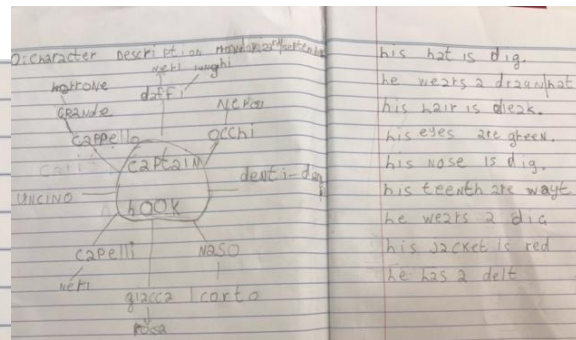 D: character Description
neri lunghi
marrone
GRANDE
daffi
Neri
cappello
occhi
captain
hook
denti-
UNCINO
capelli
NASO
Neri
giacca
corto
his hat is dig.
he wears a draunhat
his hair is dleak.
his eyes are green.
his Nose is dig.
his teenth are wayt
he wears a dig
his Jacket is red
he has a delt